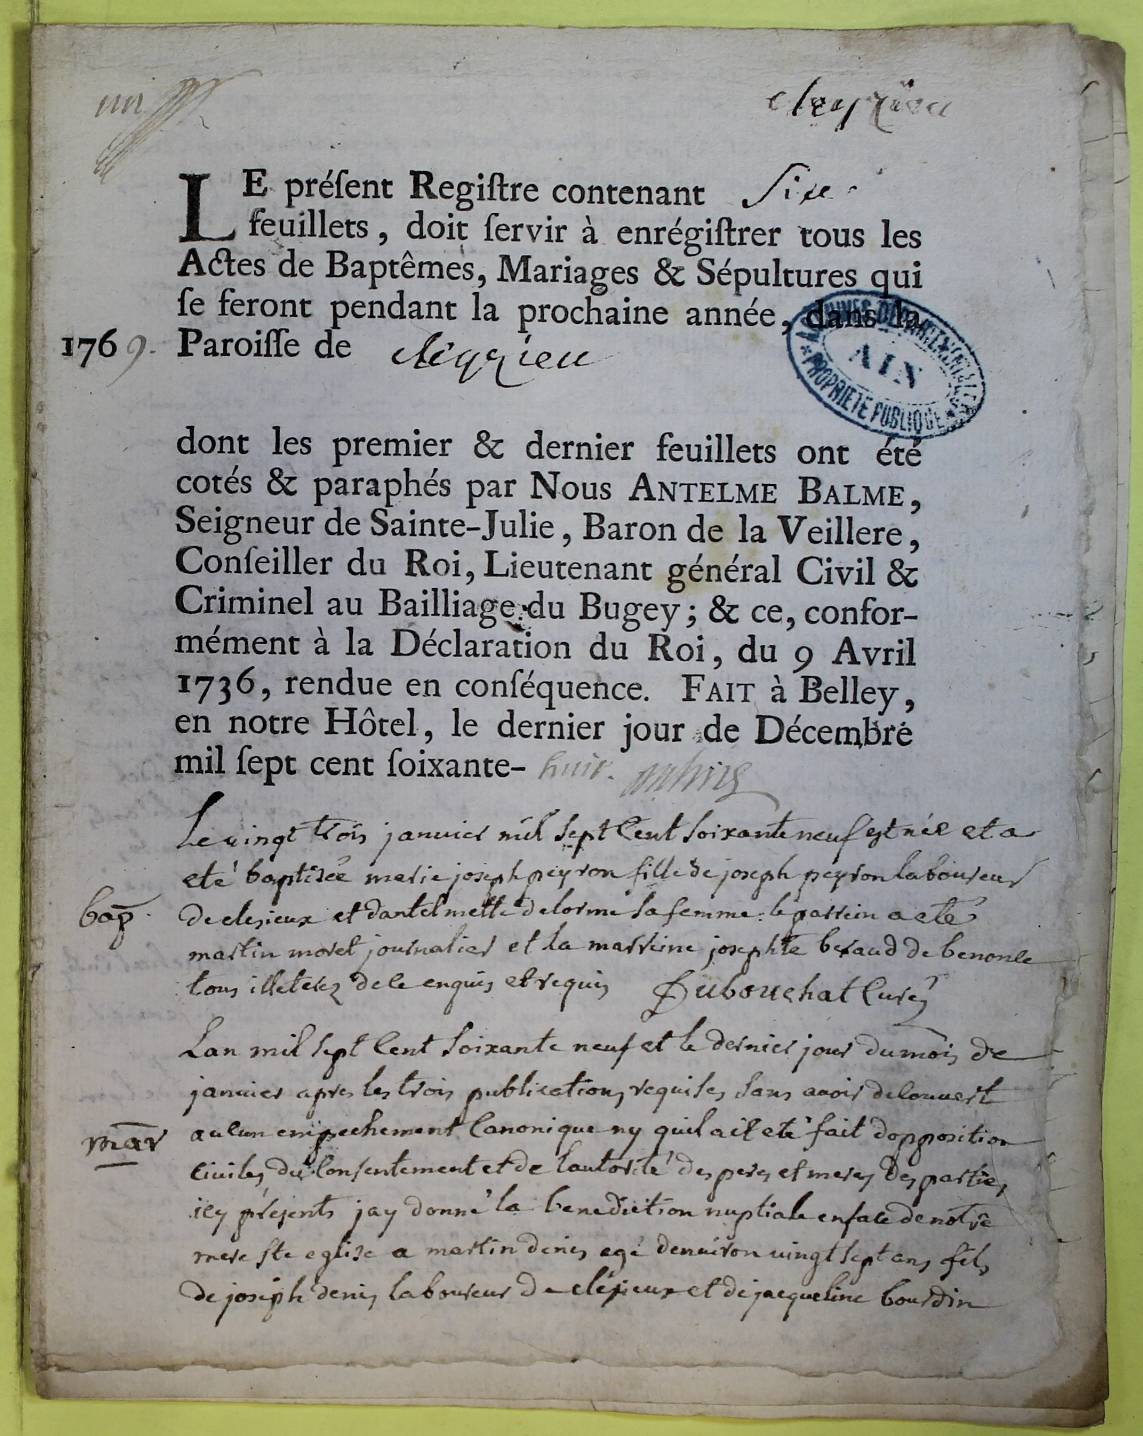 un
cleyzieu
LE préſent Regiſtre contenant Six
feuillets, doit ſervir à enrégiſtrer tous les
Actes de Baptêmes, Mariages & Sépultures qui
ſe feront pendant la prochaine année, dans la
1769. Paroiſſe de cleyzieu
ARCHIVES DÉPARTEMENTALES
AIN
PROPRIÉTÉ PUBLIQUE
dont les premier & dernier feuillets ont été
cotés & paraphés par Nous ANTELME BALME,
Seigneur de Sainte-Julie, Baron de la Veillere,
Conſeiller du Roi, Lieutenant général Civil &
Criminel au Bailliage du Bugey; & ce, confor-
mément à la Déclaration du Roi, du 9 Avril
1736, rendue en conſéquence. FAIT à Belley,
en notre Hôtel, le dernier jour de Décembre
mil ſept cent ſoixante- huit.
Le vingt trois janvier mil sept Cent soixante neuf est née et a
eté baptisée marie joseph peyron fille de joseph peyron laboureur
bap. de clesieux et dantelmette delorme sa femme. le parrein a eté
martin moret journalier et la marreine josephte beraud de benonce
tous illeterez de ce enquis et requis Dubouchat Curé
Lan mil sept Cent soixante neuf et le dernier jour du mois de
janvier apres les trois publications requises sans avoir decouvert
mar aucun empechement Canonique ny quil ait eté fait dopposition
Civiles du Consentement et de lautorité des peres et meres des parties
icy présents jay donné la benediction nuptiale en face de notre
mere ste eglise a martin denis agé denviron vingt sept ans fils
de joseph denis laboureur de clésieux et de jacqueline bourdin